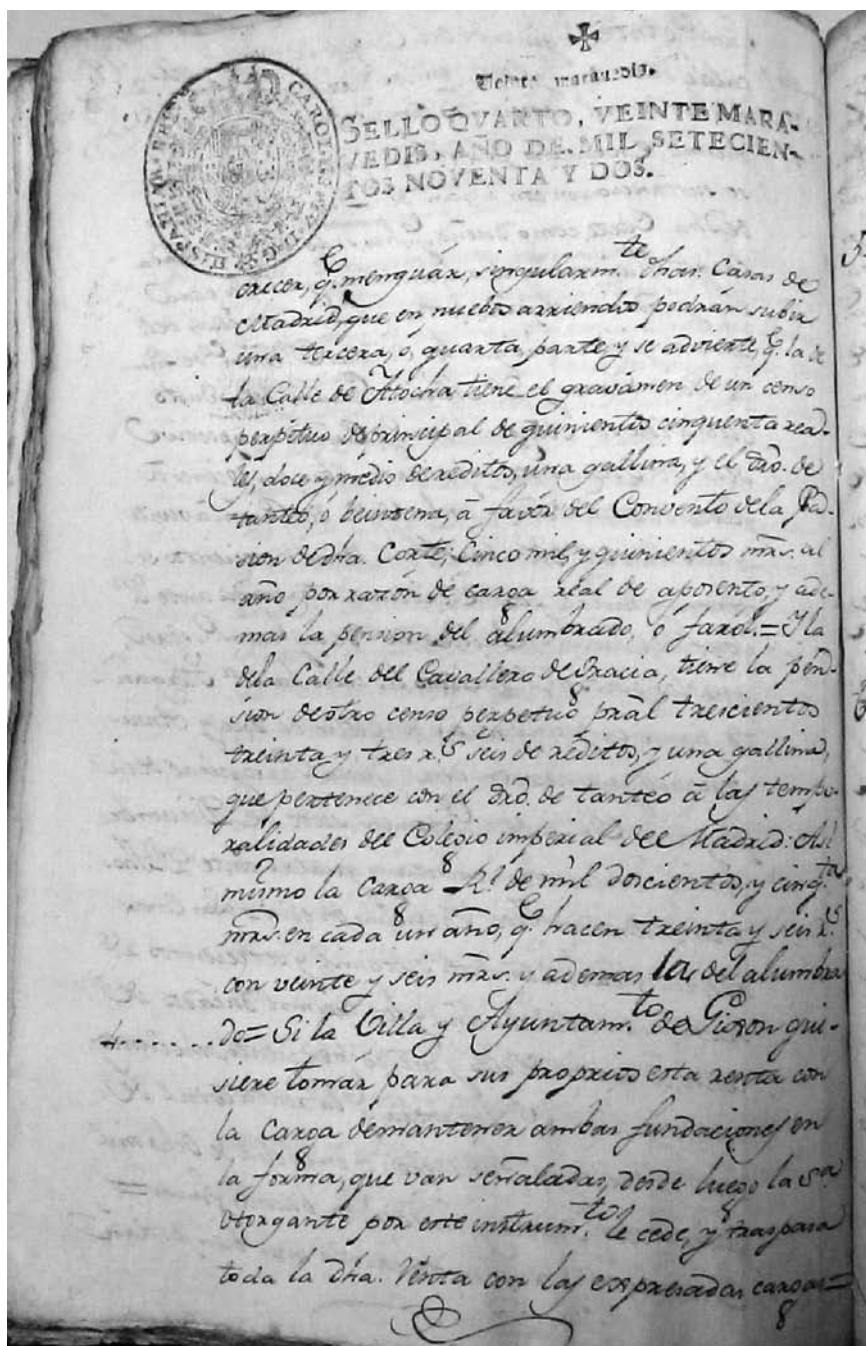 Veinte maravedis.
SELLO QVARTO, VEINTE MARA-
VEDIS, AÑO DE MIL SETECIEN-
TOS NOVENTA Y DOS.
CAROLUS IV D G HISPANIAR REX
crecer, q.e menguár, singularm.te dhas. Casas de
Madrid, que en nuebos arriendos podrán subir
una tercera, ó, quarta parte, y se advierte, q.e la de
la Calle de Atocha tiene el gravámen de un censo
perpétuo de principal de quinientos cinquenta rea-
les, doce y medio de reditos, una gallina, y el dro. de
tantéo, ó beintena, á favór del Convento dela Pa-
sion de dha. Corte; Cinco mil, y quinientos mrs. al
año por razón de carga real de aposento, y ade-
mas la pension del alumbrado, ó farol.= Y la
dela Calle del Cavallero de Gracia, tiene la pen-
sion de otro censo perpetuo pral trescientos
treinta y tres r.s seis de réditos, y una gallina,
que pertenece con el dro. de tantéo á las tempo-
ralidades del Colegio imperial de Madrid: Asi
mismo la carga R.l de mil doscientos, y cinq.tas
mrs. en cada un año, q.e hacen treinta y seis r.s
con veinte y seis mrs. y ademas la del alumbra
do= Si la Villa y Ayuntam.to de Gijon qui-
siere tomár para sus proprios esta renta con
la Carga de mantener ambas fundaciones en
la forma, que van señaladas, desde luego la S.a
otorgante por este instrum.to le cede, y traspasa
toda la dha. Renta con las expresadas cargas=